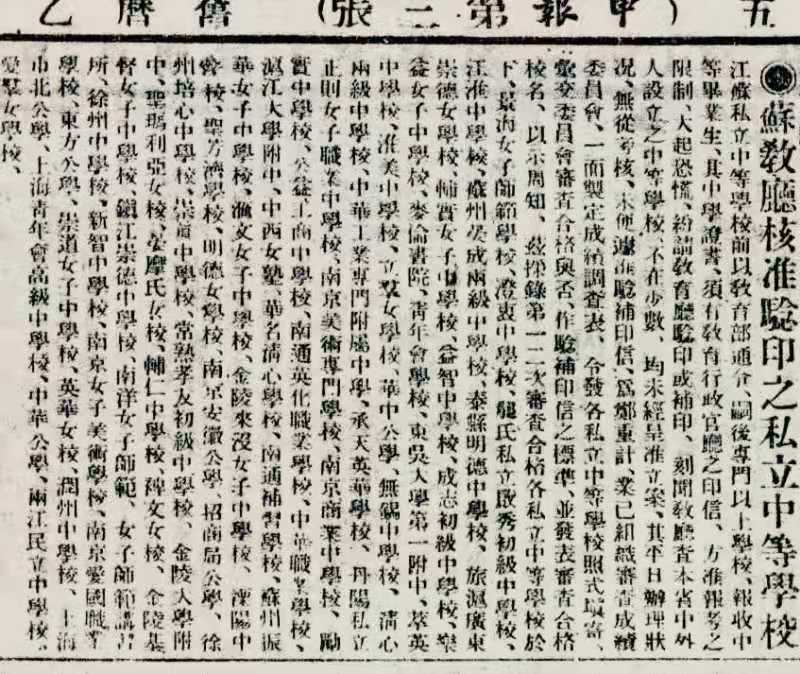 五(申報第張)舊曆乙
蘇敎廳核准騐印之私立中等學校
江蘇私立中等學校前以敎育部通令、嗣後專門以上學校、報收中
等畢業生、其中學證書、須有敎育行政官廳之印信、方准報考之
限制、大起恐慌、紛請敎育廳騐印或補印、刻聞敎廳查本省中外
人設立之中等學校、不在少數、均未經呈准立案、其平日辦理狀
況、無從考核、未便遽准騐補印信、爲鄭重計、業已組織審查成績
委員會、一面製定成績調查表、令發各私立中等學校照式塡寄、
彙交委員會審查合格與否、作騐補印信之標準、並發表審查合格
校名、以示周知、茲探錄第一二次審查合格各私立中等學校於
下、景海女子師範學校、澄衷中學校、龔氏私立啟秀初級中學校、
江淮中學校、蘇州晏成兩級中學校、泰縣明德中學校、旅滬廣東
崇德女學校、輔實女子中學校、益智中學校、成志初級中學校、樂
益女子中學校、麥倫書院、靑年會學校、東吳大學第一附中、萃英
中學校、淮美中學校、立羣女學校、華中公學、無錫中學校、淸心
兩級中學校、中華工業專門附屬中學、承天英華學校、丹陽私立
正則女子職業中學校、南京美術專門學校、南京商業中學校、勵
實中學校、公益工商中學校、南通英化職業學校、中英職業學校、
滬江大學附中、中西女塾、華名淸心學校、南通補習學校、蘇州振
華女子中學校、漁文女子中學校、金陵來沒女子中學校、溧陽中
學校、聖芳濟學校、明德女學校、南京安徽公學、招商局公學、徐
州培心中學校、崇眞中學校、常熟孝友初級中學校、金陵大學附
中、聖瑪利亞女校、晏摩氏女校、輔仁中學校、裨文女校、金陵基
督女子中學校、鎭江崇德中學校、南洋女子師範、女子師範講習
所、徐州中學校、新智中學校、南京女子美術學校、南京愛國職業
學校、東方公學、崇道女子中學校、英華女校、潤州中學校、上海
市北公學、上海靑年會高級中學校、中華公學、兩江民立中學校、
愛羣女學校、